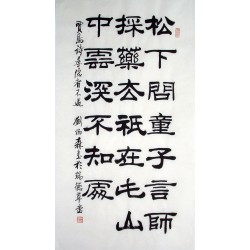 松下問童子言師
採藥去祇在此山
中雲深不知處
賈島詩尋隱者不遇 劉炳森書於